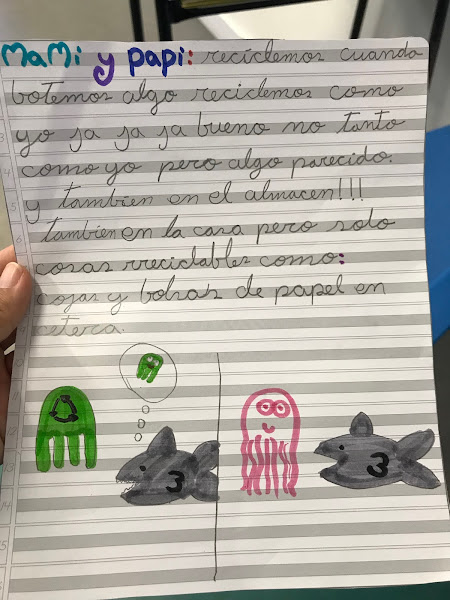 MaMi y papi: reciclemos cuando
botemos algo reciclemos como
yo ja ja ja bueno no tanto
como yo pero algo parecido.
y tambien en el almacen!!!
tambien en la casa pero solo
cosas rreciclables como:
cojas y bolsas de papel en
cetera.
3
3